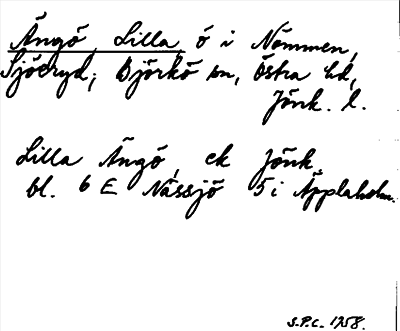 Ängö, Lilla, ö i Nömmen,
Sjöeryd, Björkö sn, Östra hd,
Jönk. l.
Lilla Ängö, ek Jönk.
bl. 6 E Nässjö 5 i Äpplaholm.
S.P.C. 1958.